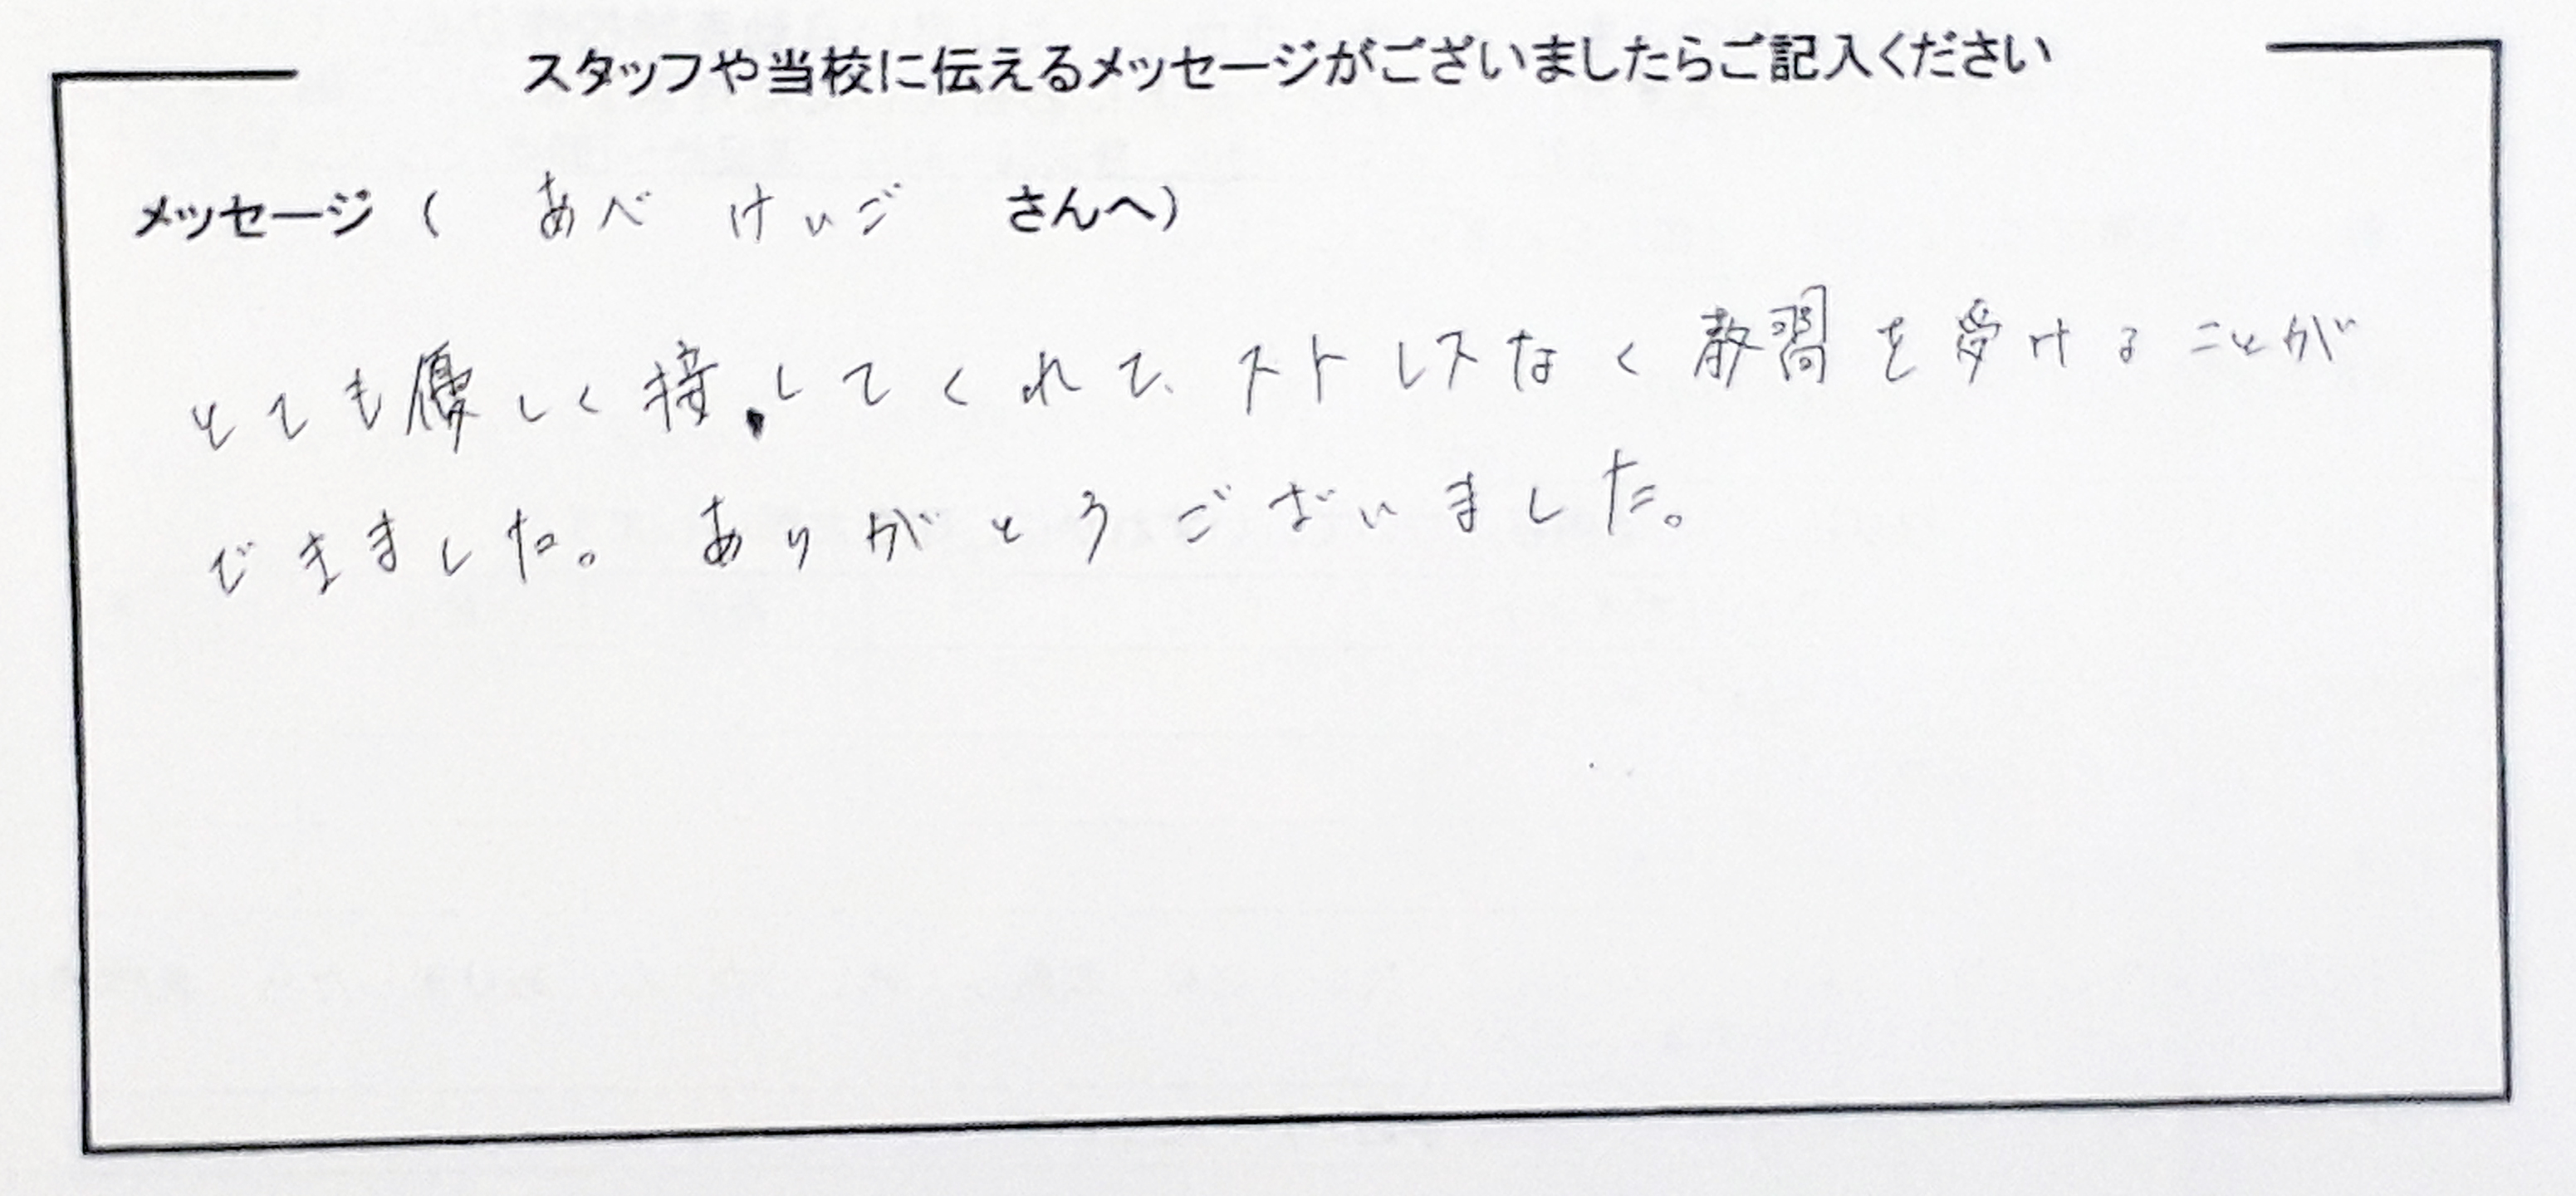 スタッフや当校に伝えるメッセージがございましたらご記入ください
メッセージ（ あべ けいご さんへ）
とても優しく接してくれて、ストレスなく教習を受けることが
できました。ありがとうございました。